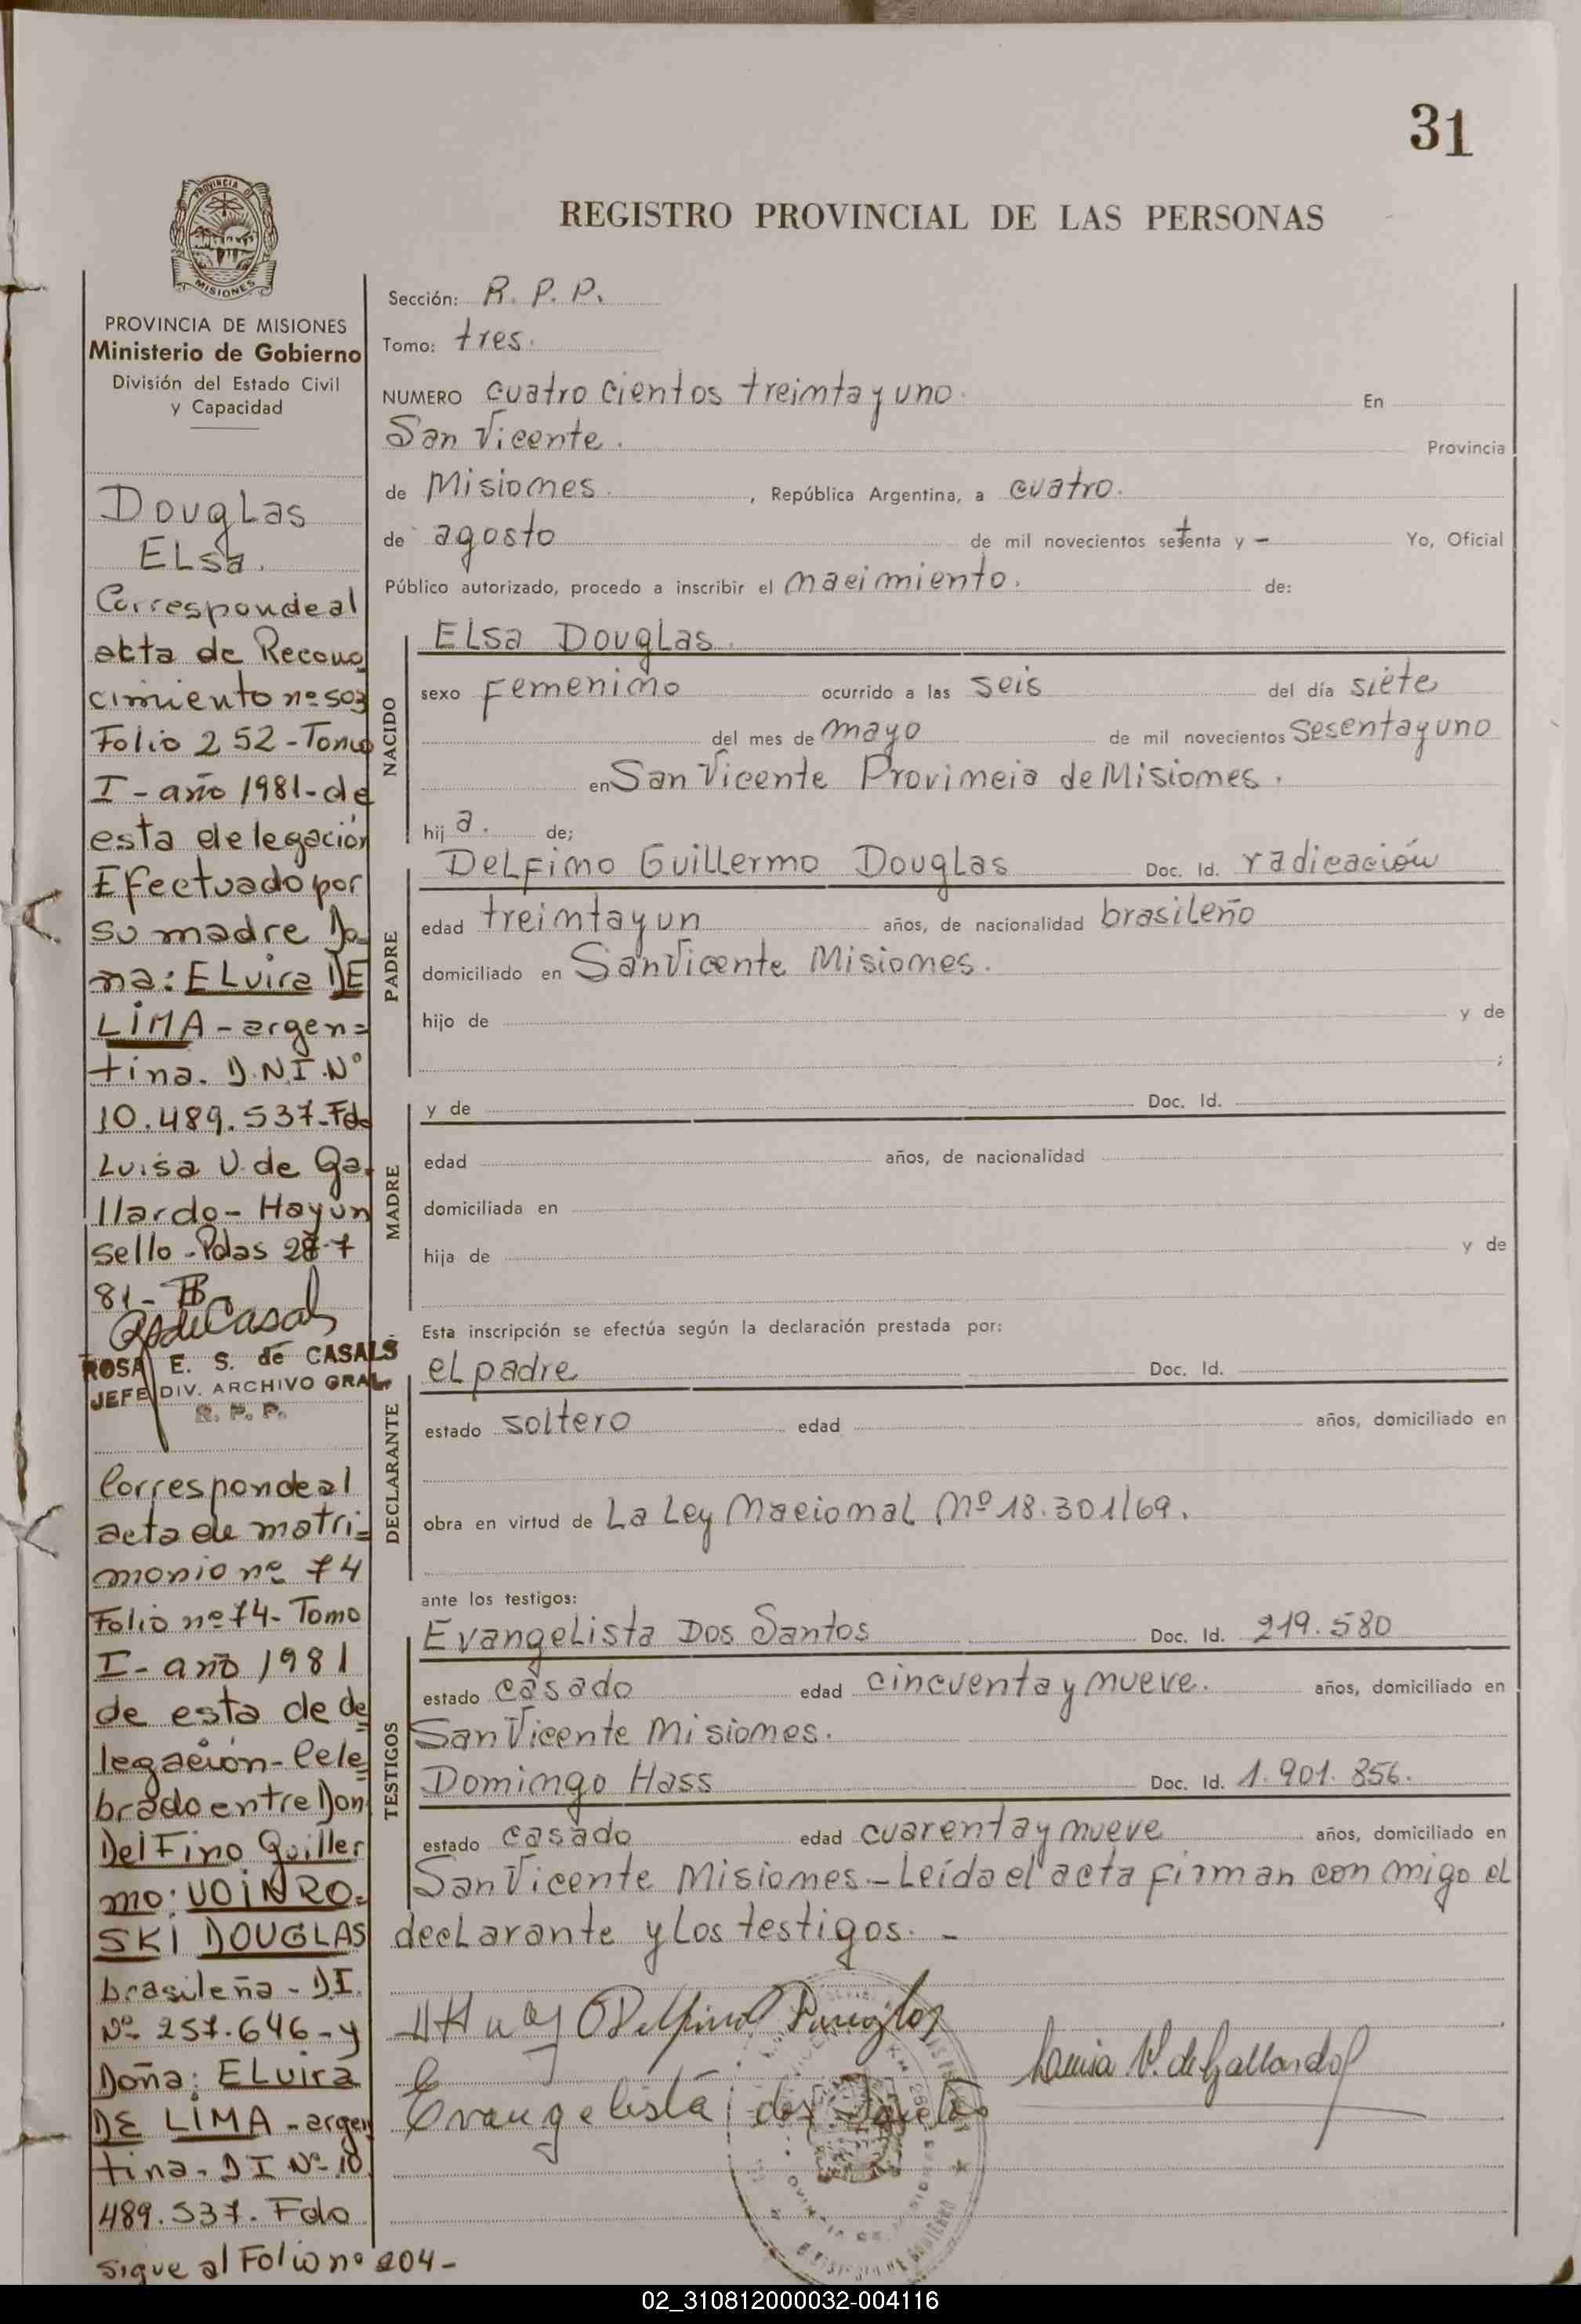 31
PROVINCIA DE
MISIONES
REGISTRO PROVINCIAL DE LAS PERSONAS
PROVINCIA DE MISIONES
Ministerio de Gobierno
División del Estado Civil
y Capacidad
Douglas
ELsa.
Corresponde al
acta de Recono
cimiento nº 503
Folio 252 - Tomo
I - año 1981 - de
esta delegación
Efectuado por
su madre Do-
ña: ELvira DE
LIMA - argen=
tina. D.N.I. Nº
10.489.537 - Fdo
Luisa V. de Ga-
llardo - Hay un
sello - Pdas 28-7
81 -
ROSA E. S. de CASALS
JEFE DIV. ARCHIVO GRAL.
R. P. P.
Corresponde al
acta de matri=
monio nº 74
Folio nº 74 - Tomo
I - año 1981
de esta de de
legación - Cele
brado entre Don
DelFino Guiller
mo: VOINRO=
SKI DOUGLAS
brasileña - D.I.
Nº 257.646 - y
Doña: ELvira
DE LIMA - argen
tina - D I Nº 10
489.537. Fdo
Sigue al Folio nº 204 -
Sección: R. P. P.
Tomo: tres.
NUMERO cuatro cientos treinta y uno. En
San Vicente. Provincia
de Misiones. , República Argentina, a cuatro.
de agosto de mil novecientos setenta y - Yo, Oficial
Público autorizado, procedo a inscribir el nacimiento. de:
NACIDO
ELsa DougLas.
sexo Femenino ocurrido a las seis del día siete
del mes de mayo de mil novecientos sesenta y uno
en San Vicente Provincia de Misiones.
hij a. de;
PADRE
DeLFino Guillermo DougLas Doc. Id. radicación
edad treinta y un años, de nacionalidad brasiLeño
domiciliado en San Vicente Misiones.
hijo de y de
;
MADRE
y de Doc. Id.
edad años, de nacionalidad
domiciliada en
hija de y de
Esta inscripción se efectúa según la declaración prestada por:
DECLARANTE
eL padre Doc. Id.
estado soltero edad años, domiciliado en
obra en virtud de La Ley NacionaL Nº 18.301/69.
ante los testigos:
TESTIGOS
EvangeLista Dos Santos Doc. Id. 219.580
estado casado edad cincuenta y nueve. años, domiciliado en
San Vicente Misiones.
Domingo Hass Doc. Id. 1.901.856.
estado casado edad cuarenta y nueve años, domiciliado en
San Vicente Misiones.- Leída el acta firman con migo eL
decLarante y Los testigos. -
Luisa V. de Gallardo
Evangelista dos
02_310812000032-004116